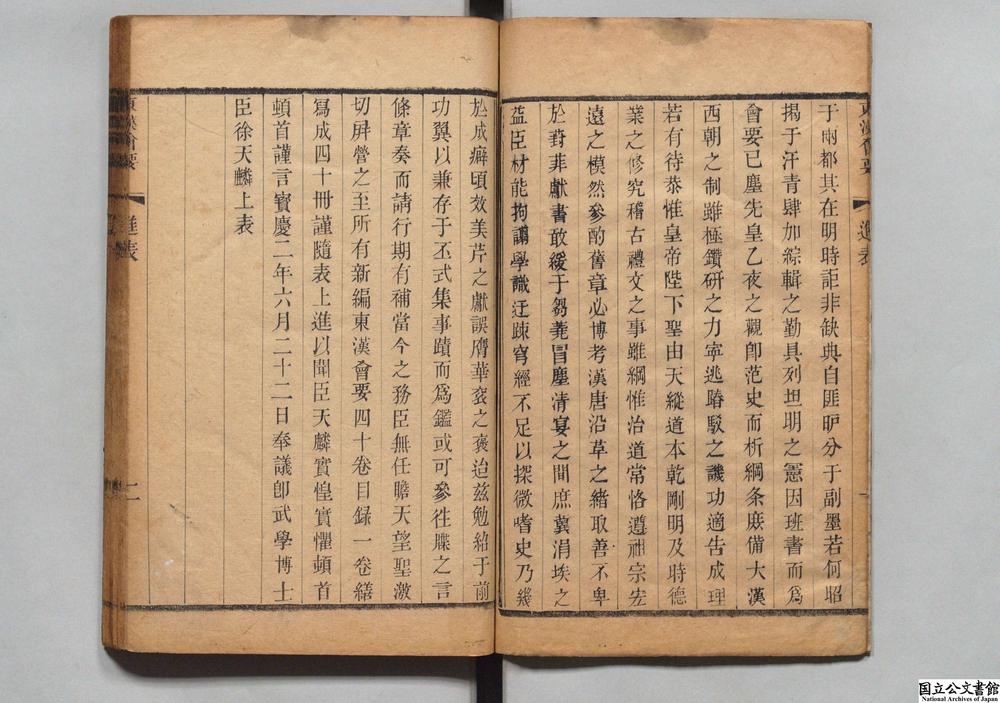 于兩都其在明時詎非缺典自匪昈分于副墨若何昭
揭于汗青肆加綜輯之勤具列坦明之憲因班書而爲
會要已塵先皇乙夜之觀卽范史而析綱条庶備大漢
西朝之制雖極鑽研之力寧逃踳駁之譏功適告成理
若有待恭惟皇帝陛下聖由天縱道本乾剛明及時德
業之修究稽古禮文之事雖綱惟治道常恪遵祖宗宏
遠之模然參酌舊章必博考漢唐沿革之緒取善不卑
於葑菲獻書敢緩于芻蕘冒塵清宴之間庶冀涓埃之
益臣材能拘謭學識迂疎窮經不足以探微嗜史乃幾
東漢會要
進表
一
於成癖頃效美芹之獻誤膺華衮之褒迨兹勉紹于前
功翼以兼存于丕式集事蹟而爲鑑或可參徃牒之言
條章奏而請行期有補當今之務臣無任瞻天望聖激
切屏營之至所有新編東漢會要四十卷目録一卷繕
寫成四十冊謹隨表上進以聞臣天麟實惶實懼頓首
頓首謹言寶慶二年六月二十二日奉議郎武學博士
臣徐天麟上表
東漢會要
進表
二
国立公文書館
National Archives of Japan